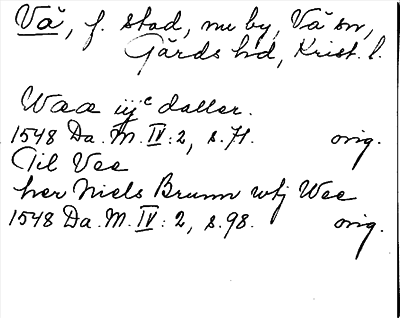 Vä, f. stad, nu by, Vä sn,
Gärds hd, Krist. l.
Waa iijc daller.
1548 Da. M. IV: 2, s. 71. orig.
Til Vee
her Niels Brunn wtj Wee
1548 Da. M. IV: 2, s. 98. orig.